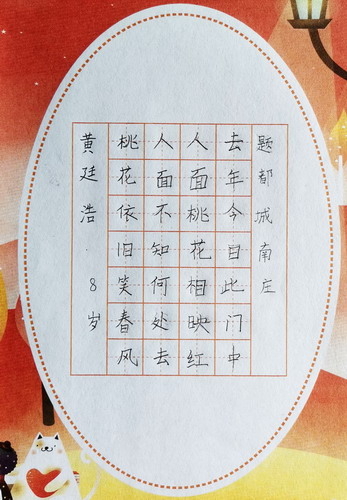 题都城南庄
去年今日此门中
人面桃花相映红
人面不知何处去
桃花依旧笑春风
黄廷浩 8岁